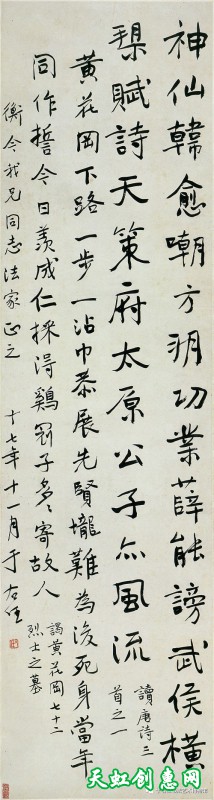 神仙韓愈嘲方朔功業薛能謗武侯橫
槊賦詩天策府太原公子亦風流
讀唐詩三
首之一
黃花岡下路一步一沾巾恭展先賢壠難為後死身當年
同作誓今日羨成仁採得鷄冠子多多寄故人
謁黃花岡七十二
烈士之墓
衡今我兄同志法家正之
十七年十一月于右任
天虹创惠网